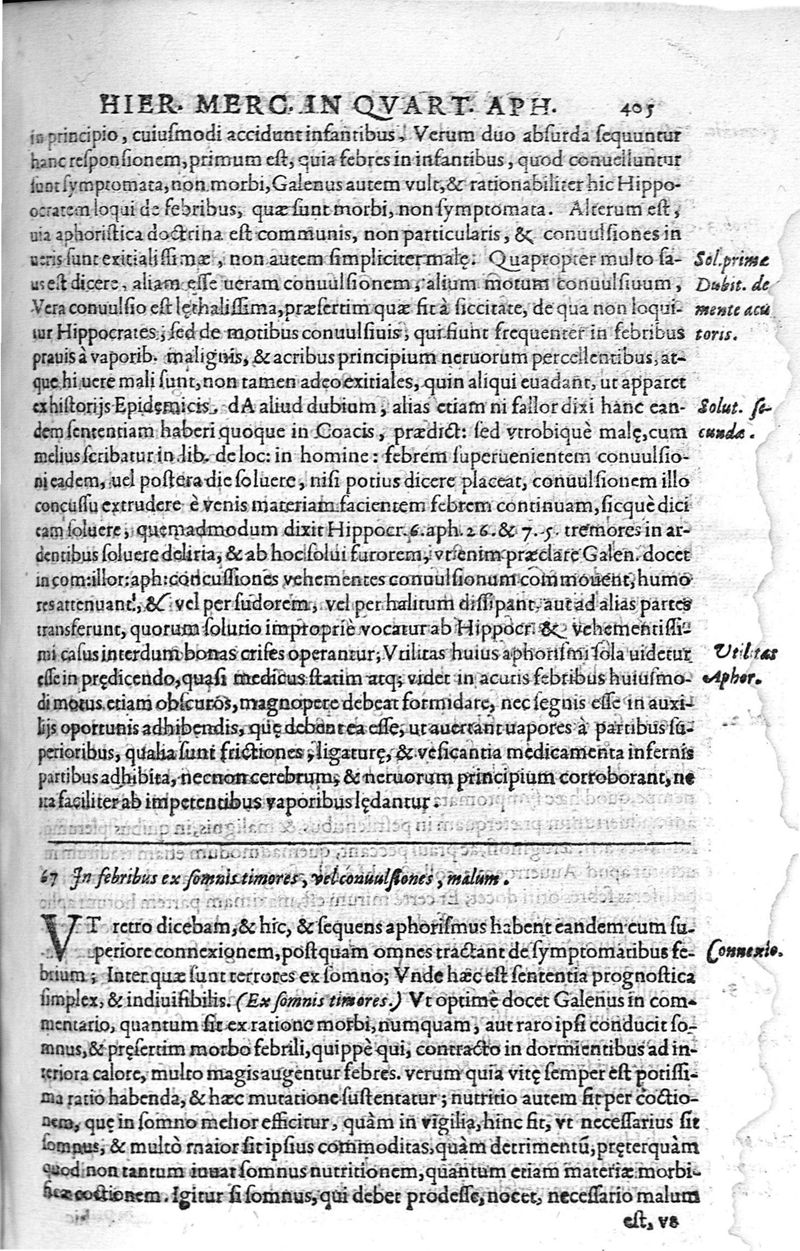 HIER. MERC. IN QVART. APH. 405
in principio, cuiusmodi accidunt infantibus. Verum duo absurda sequuntur
hanc responsionem, primum est, quia febres in infantibus, quod conuelluntur
sunt symptomata, non morbi, Galenus autem vult, & rationabiliter hic Hippo-
ocratem loqui de febribus, quæ sunt morbi, non symptomata. Alterum est,
uia aphoristica doctrina est communis, non particularis, & conuulsiones in
ueris sunt exitialissimæ, non autem simpliciter malę. Quapropter multo sa-
us est dicere, aliam esse ueram conuulsionem, alium motum conuulsiuum,
Vera conuulsio est lęthalissima, præsertim quæ fit à siccitate, de qua non loqui-
tur Hippocrates, sed de motibus conuulsiuis, qui fiunt frequenter in febribus
prauis à vaporib. malignis, & acribus principium neruorum percellentibus, at-
que hi uere mali sunt, non tamen adeo exitiales, quin aliqui euadant, ut apparet
ex historijs Epidemicis. dA aliud dubium, alias etiam ni fallor dixi hanc ean-
dem sententiam haberi quoque in Coacis, prædict: sed vtrobiquè malę, cum
melius scribatur in lib. de loc: in homine: febrem superuenientem conuulsio-
ni eadem, uel postera die soluere, nisi potius dicere placeat, conuulsionem illo
concussu extrudere è venis materiam facientem febrem continuam, sicquè dici
eam soluere, quemadmodum dixit Hippocr. 6. aph. 26. & 7. 5. tremores in ar-
dentibus soluere deliria, & ab hoc solui furorem, vt enim præclare Galen. docet
in com: illor: aph: concussiones vehementes conuulsionum commouent, humo
res attenuant, & vel per sudorem, vel per halitum dissipant, aut ad alias partes
transferunt, quorum solutio impropriè vocatur ab Hippocr. & vehementissi-
mi casus interdum bonas crises operantur; Vtilitas huius aphorismi sola uidetur
esse in prędicendo, quasi medicus statim atq; videt in acutis febribus huiusmo-
di motus etiam obscuros, magnopere debeat formidare, nec segnis esse in auxi-
lijs oportunis adhibendis, quę debent ea esse, ut auertant uapores à partibus su-
perioribus, qualia sunt frictiones, ligaturę, & vesicantia medicamenta infernis
partibus adhibita, necnon cerebrum, & neruorum principium corroborant, ne
ita faciliter ab impetentibus vaporibus lędantur.
Sol. primæ
Dubit. de
mente acu
toris.
Solut. se-
cundæ.
Utilitas
Aphor.
67 In febribus ex somnis timores, vel conuulsiones, malum.
VT retro dicebam, & hic, & sequens aphorismus habent eandem cum su-
periore connexionem, postquam omnes tractant de symptomatibus fe-
brium; Inter quæ sunt terrores ex somno; Vnde hæc est sententia prognostica
simplex, & indiuisibilis. (Ex somnis timores.) Vt optimę docet Galenus in com-
mentario, quantum sit ex ratione morbi, numquam, aut raro ipsi conducit so-
mnus, & pręsertim morbo febrili, quippè qui, contracto in dormientibus ad in-
teriora calore, multo magis augentur febres. verum quia vitę semper est potissi-
ma ratio habenda, & hæc mutatione sustentatur; nutritio autem fit per coctio-
nem, quę in somno melior efficitur, quàm in vigilia, hinc fit, vt necessarius sit
somnus, & multò maior sit ipsius commoditas, quàm detrimentũ, pręterquàm
quod non tantum iuuat somnus nutritionem, quantum etiam materiæ morbi-
ficæ coctionem. Igitur si somnus, qui debet prodesse, nocet, necessario malum
est, vs
Connexio.